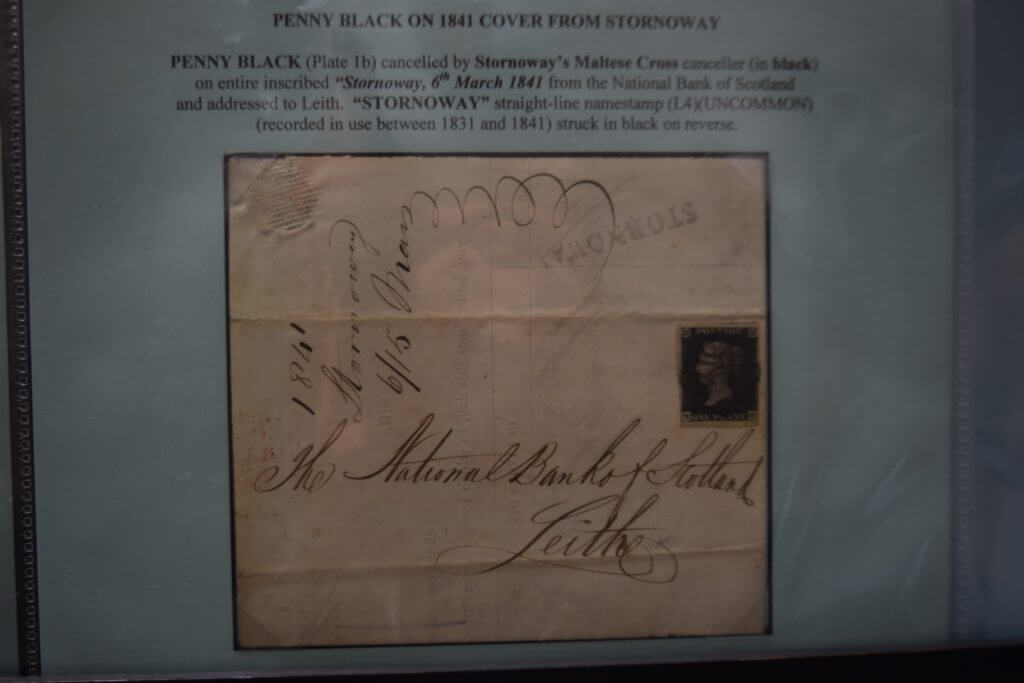 PENNY BLACK ON 1841 COVER FROM STORNOWAY
PENNY BLACK (Plate 1b) cancelled by Stornoway's Maltese Cross canceller (in black)
on entire inscribed "Stornoway, 6th March 1841 from the National Bank of Scotland
and addressed to Leith. "STORNOWAY" straight-line namestamp (L4)(UNCOMMON)
(recorded in use between 1831 and 1841) struck in black on reverse.
STORNOWAY
1841
Stornoway
6/15 Mar
POSTAGE
ONE PENNY
The National Bank of Scotland
Leith